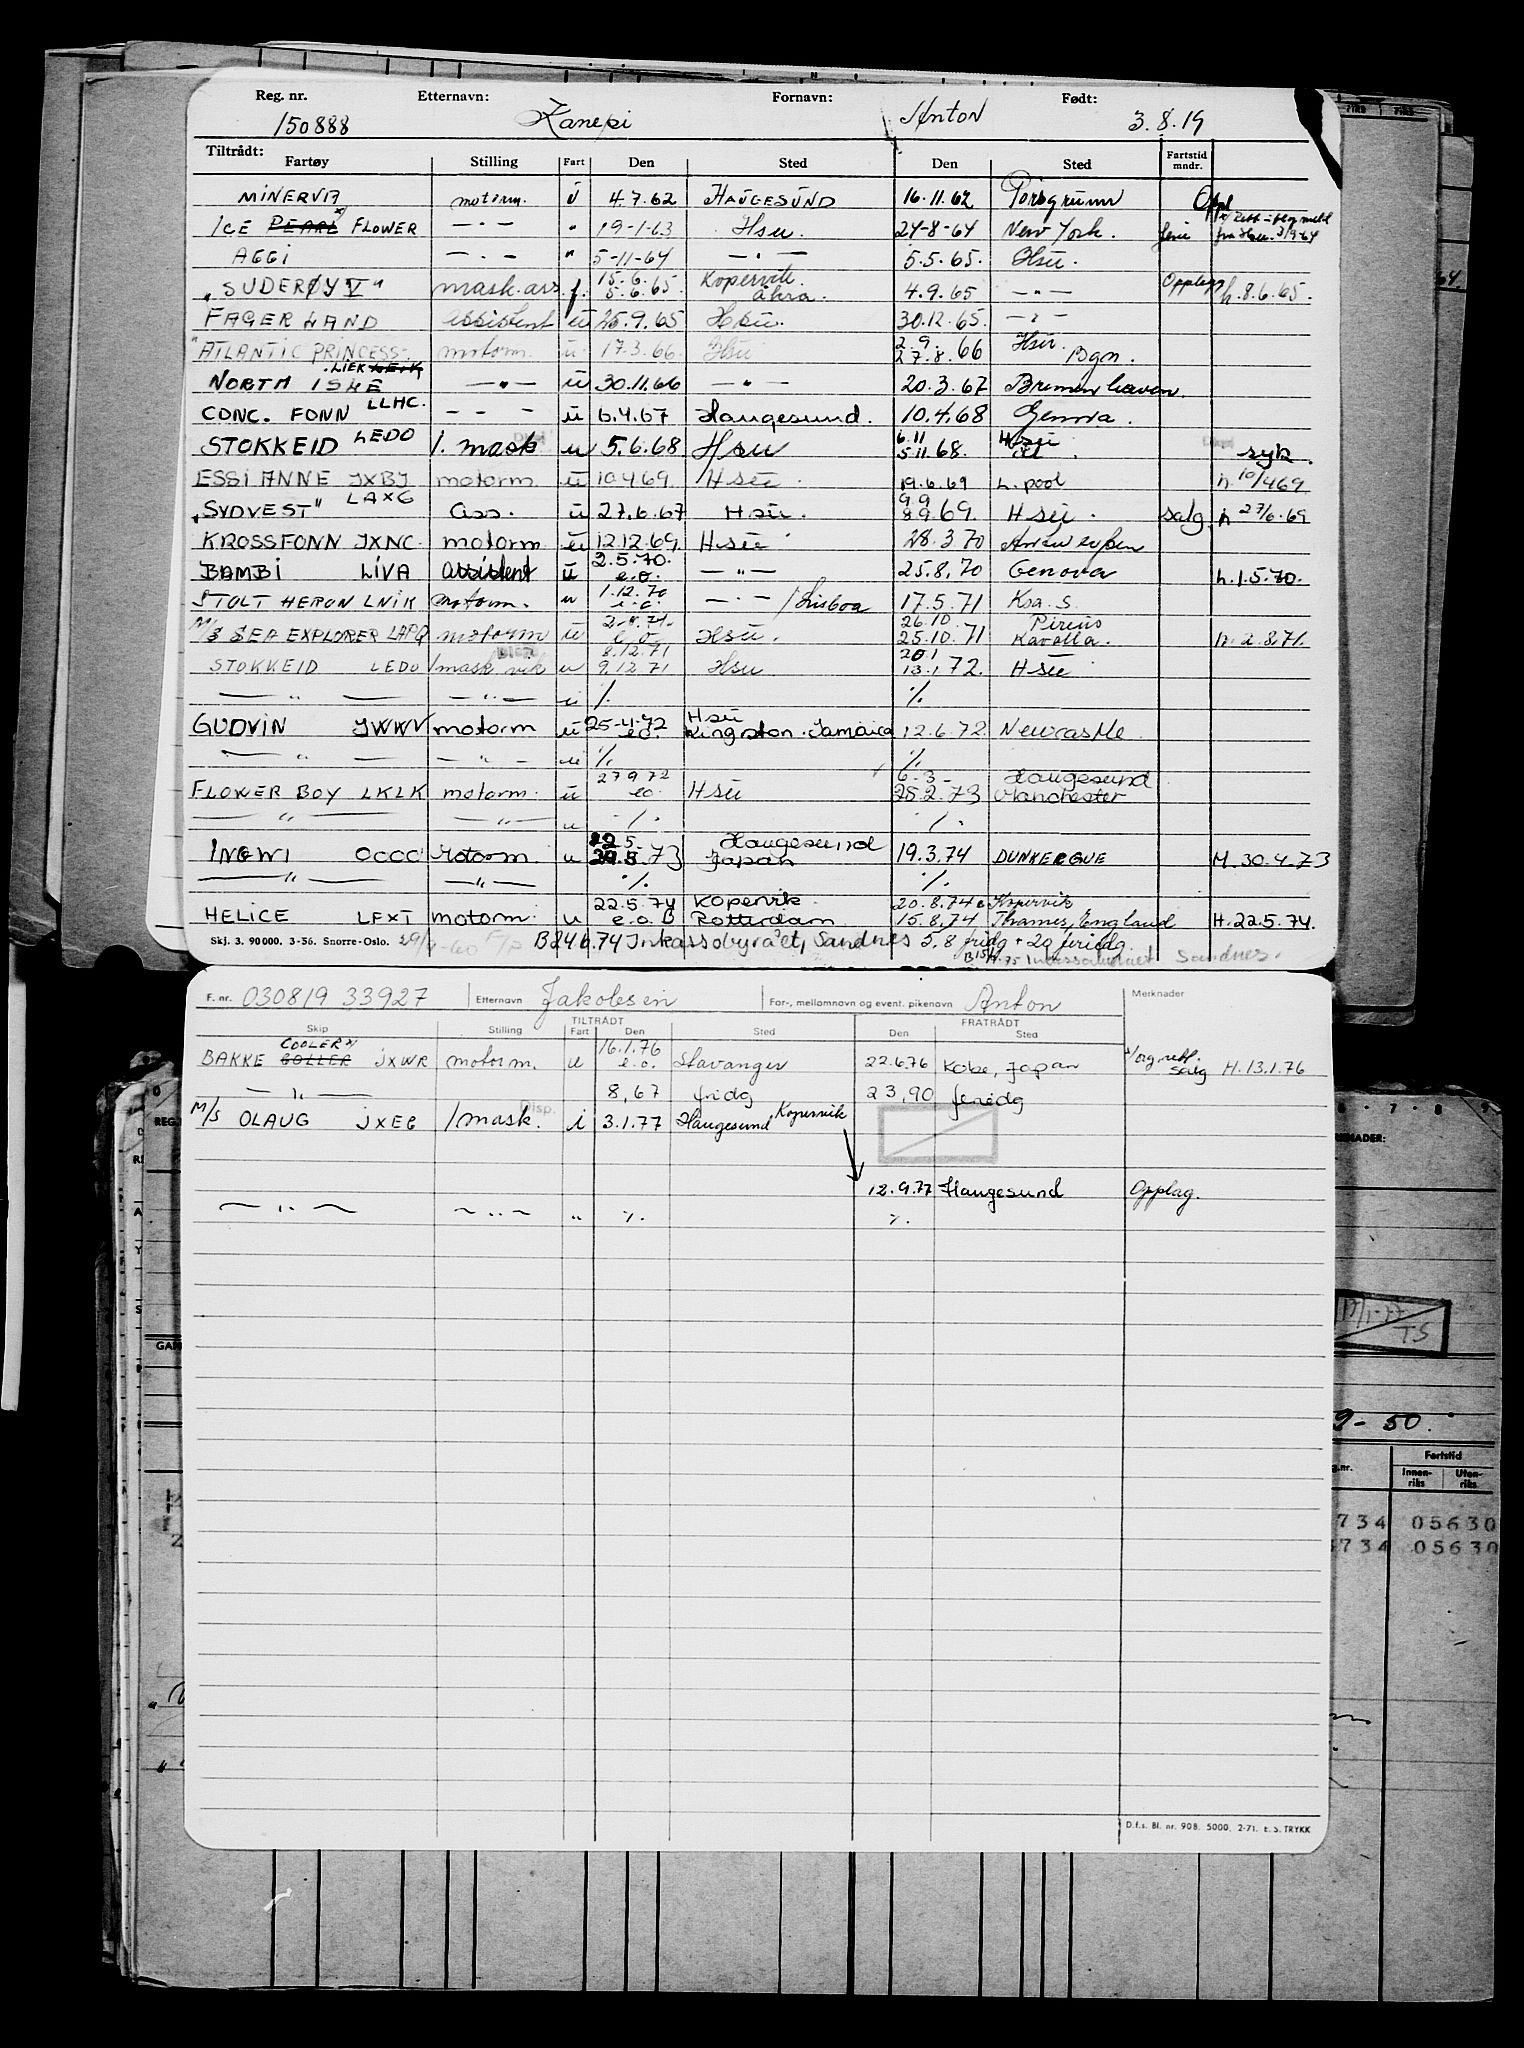 Reg. nr. Etternavn: Fornavn: Født:
150888 Kanepi Anton 3.8.19
Tiltrådt:
Fartøy Stilling Fart Den Sted Den Sted Fartstid mndr.
MINERVA motorm. ü 4.7.62 HAUGESUND 16.11.62 Porsgrunn Oppl
ICE PEARL FLOWER — · — " 19-1-63 Hsu. 24-8-64 New York. ferie
AGGI — · — " 5-11-64 — " — 5.5.65. Hsu.
"SUDERØY V" mask.ass. f. 15.6. 5.6.65. Kopervik. Åkra. 4.9.65 — " — Opplag h.8.6.65.
FAGERLAND assistent ü 25.9.65 Hsu. 30.12.65. — " —
"ATLANTIC PRINCESS. motorm. u. 17.3.66. Hsu 2.9. 27.8.66 Hsu. Bgn.
NORTH ISLE LIEK — " — ü 30.11.66 — " — 20.3.67 Bremerhaven.
CONC. FONN LLHC. — — — ü 6.4.67 Haugesund. 10.4.68 Genova.
STOKKEID LEDO 1. mask u 5.6.68 Hsu 6.11 5.11.68. Hsu syk.
ESSI ANNE JXBJ motorm. ü 10.4.69. Hsü. 19.6.69 L.pool h 10/4 69
"SYDVEST" LAXG ass. ü 27.6.67 Hsü. 9.9 8.9.69. Hsü. salg h 27/6.69
KROSSFONN JXNC. motorm ü 12.12.69. Hsü 28.3.70 Antwerpen
BAMBI LIVA assistent ü 2.5.70. e.o. — " — 25.8.70 Genova h.1.5.70.
STOLT HERON LNIK motorm. u 1.12.70 e.o. — · — / Lisboa 17.5.71 Ksa.S.
M/S SEA EXPLORER LAPQ motorm ü e.o. Hsu. 26.10. 25.10.71 Pireus Kavalla. h.2.8.71.
STOKKEID LEDO 1 mask vik u 8.12.71 9.12.71 Hsu 20.1 13.1.72. Hsü
— " — — " — u % %
GUDVIN JWWV motorm ü 25-4-72 eo Hsü Kingston. Jamaica 12.6.72 Newcastle
— " — — " — u % %
FLOWER BOY LKLK motorm. ü 27 9 72 eo. Hsü 6-3- 25.2.73 Haugesund Manchester
— " — — " — u % %
INGWI motorm. u 22.5. 73 Haugesund Japan 19.3.74 DUNKERQUE M.30.4.73
— " — — " — % %
HELICE LFXT motorm. u 22.5.74 e.o.B Kopervik Rotterdam 20.8.74 15.8.74 Kopervik Thames, England H.22.5.74.
Skj. 3. 90000. 3-56. Snorre-Oslo. B24 6.74 Inkassobyrået, Sandnes 5,8 fridg + 29 feriedg.
Sandnes.
F. nr. 030819 33927 Etternavn Jakobsen For-, mellomnavn og event. pikenavn Anton Merknader
TILTRÅDT FRATRÅDT
Skip Stilling Fart Den Sted Den Sted
BAKKE COOLER x) JXWR motorm. u 16.1.76 e.o. Stavanger 22.6.76 Kobe, Japan x/org rett. salg H.13.1.76
— " — 8,67 fridg 23,90 feridg
M/S OLAUG JXEG 1 mask. Disp. i 3.1.77 Haugesund Kopervik
12.9.77 Haugesund Opplag.
— " — — " — " % %
D.f.s. Bl. nr. 908. 5000. 2-71. E.S. TRYKK
TS
9-50.
Fartstid
Innen-riks Uten-riks
734 05630
734 05630